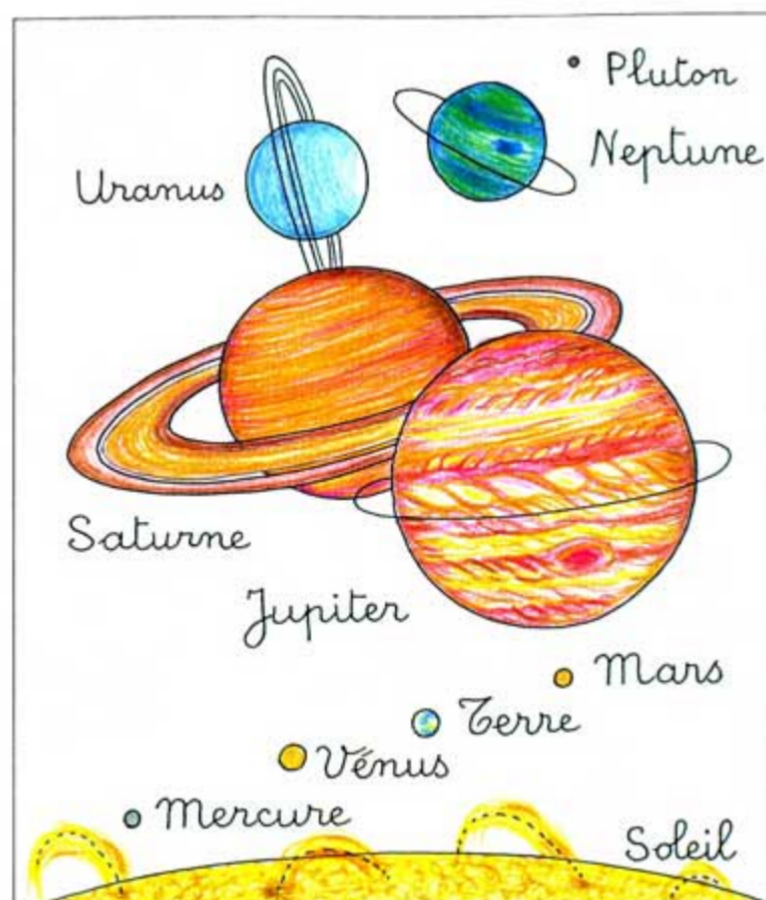 Pluton
Neptune
Uranus
Saturne
Jupiter
Mars
Terre
Vénus
Mercure
Soleil